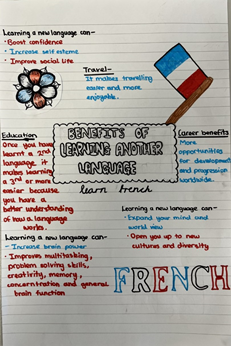 Learning a new language can-
• Boost confidence
• Increase self esteme
• Improve social life
Travel-
It makes travelling
easier and more
enjoyable.
Education
Once you have
learnt a 2nd
language, it
makes learning
a 3rd or more
easier because
you have a
better understanding
of how a language
works.
BENEFITS OF
LEARNING ANOTHER
LANGUAGE
learn french
Career benefits
More
opportunities
for development
and progression
worldwide.
Learning a new language can-
• Expand your mind and
world view
• Open you up to new
cultures and diversity
Learning a new language can-
- Increase brain power
• Improves multitasking,
problem solving skills,
creativity, memory,
concentration and general
brain function
FRENCH